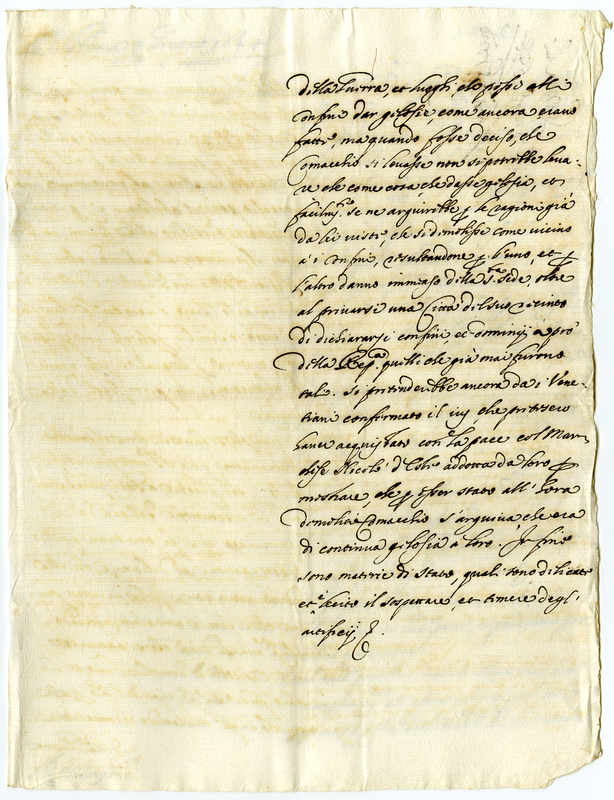 della Guerra, et luoghi, che possi alli
confini dar gelosie, come ancora erano
fatte, ma quando fosse deciso, che
Comacchio si levasse non si potrebbe leva-
re che come cosa, che dasse gelosia, et
facilm.te se ne arguirebbe p le ragioni già
da lei viste, che si demolisse come vicino
a'i confini, resultandone p l'uno, et p
l'altro danno immenso della S.ta Sede, oltre
al privarsi una Città del suo recinto
di dichiararsi confini et dominij a prò
della Rep.a quelli che già mai furono
tali. Si pretenderebbe ancora da i Vene-
tiani confermato il ius, che pretesero
haver acquistato con la pace col Mar-
chese Nicolò d'Este addotta da loro p
mostrare, che p esser stato all'hora
demolito Comacchio s'arguiva, che era
di continua gelosia a loro. In fine
sono materie di stato, quali sono dilicate
et è lecito il sospettare, et temere degl'
artificij